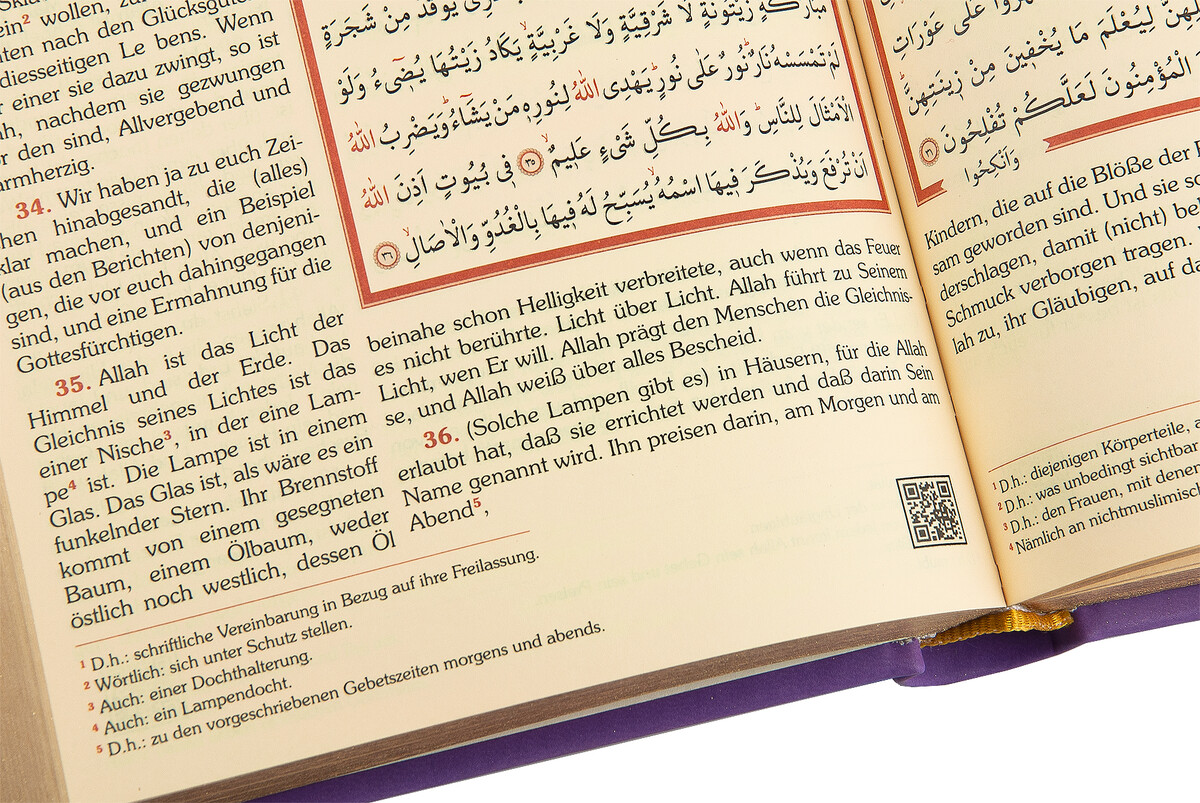 مِنْ شَجَرَةٍ
مُبَارَكَةٍ زَيْتُونَةٍ لَا شَرْقِيَّةٍ وَلَا غَرْبِيَّةٍ يَكَادُ زَيْتُهَا يُضٖٓيءُ وَلَوْ
لَمْ تَمْسَسْهُ نَارٌ نُورٌ عَلٰى نُورٍ يَهْدِى اللّٰهُ لِنُورِهٖ مَنْ يَشَٓاءُ وَيَضْرِبُ اللّٰهُ
الْاَمْثَالَ لِلنَّاسِ وَاللّٰهُ بِكُلِّ شَیْءٍ عَلٖيمٌ ﴿٣٥﴾ فٖى بُيُوتٍ اَذِنَ اللّٰهُ
اَنْ تُرْفَعَ وَيُذْكَرَ فٖيهَا اسْمُهُ يُسَبِّحُ لَهُ فٖيهَا بِالْغُدُوِّ وَالْاٰصَالِ ﴿٣٦﴾
ein² wollen,
ten nach den Glücksgüt
diesseitigen Le bens. Wenn
einer sie dazu zwingt, so ist
nachdem sie gezwungen
den sind, Allvergebend und
armherzig.
34. Wir haben ja zu euch Zei-
chen hinabgesandt, die (alles)
klar machen, und ein Beispiel
(aus den Berichten) von denjeni-
gen, die vor euch dahingegangen
sind, und eine Ermahnung für die
Gottesfürchtigen.
35. Allah ist das Licht der
Himmel und der Erde. Das
Gleichnis seines Lichtes ist das
einer Nische³, in der eine Lam-
pe⁴ ist. Die Lampe ist in einem
Glas. Das Glas ist, als wäre es ein
funkelnder Stern. Ihr Brennstoff
kommt von einem gesegneten
Baum, einem Ölbaum, weder
östlich noch westlich, dessen Öl
beinahe schon Helligkeit verbreitete, auch wenn das Feuer
es nicht berührte. Licht über Licht. Allah führt zu Seinem
Licht, wen Er will. Allah prägt den Menschen die Gleichnis-
se, und Allah weiß über alles Bescheid.
36. (Solche Lampen gibt es) in Häusern, für die Allah
erlaubt hat, daß sie errichtet werden und daß darin Sein
Name genannt wird. Ihn preisen darin, am Morgen und am
Abend⁵,
¹ D.h.: schriftliche Vereinbarung in Bezug auf ihre Freilassung.
² Wörtlich: sich unter Schutz stellen.
³ Auch: einer Dochthalterung.
⁴ Auch: ein Lampendocht.
⁵ D.h.: zu den vorgeschriebenen Gebetszeiten morgens und abends.
عَلٰى عَوْرَاتِ
لِيُعْلَمَ مَا يُخْفٖينَ مِنْ زٖينَتِهِنَّ
الْمُؤْمِنُونَ لَعَلَّكُمْ تُفْلِحُونَ ﴿٣١﴾
وَاَنْكِحُوا
Kindern, die auf die Blöße der
sam geworden sind. Und sie so
derschlagen, damit (nicht) be
Schmuck verborgen tragen.
lah zu, ihr Gläubigen, auf da
¹ D.h.: diejenigen Körperteile,
² D.h.: was unbedingt sichtbar
³ D.h.: den Frauen, mit denen
⁴ Nämlich an nichtmuslimisc